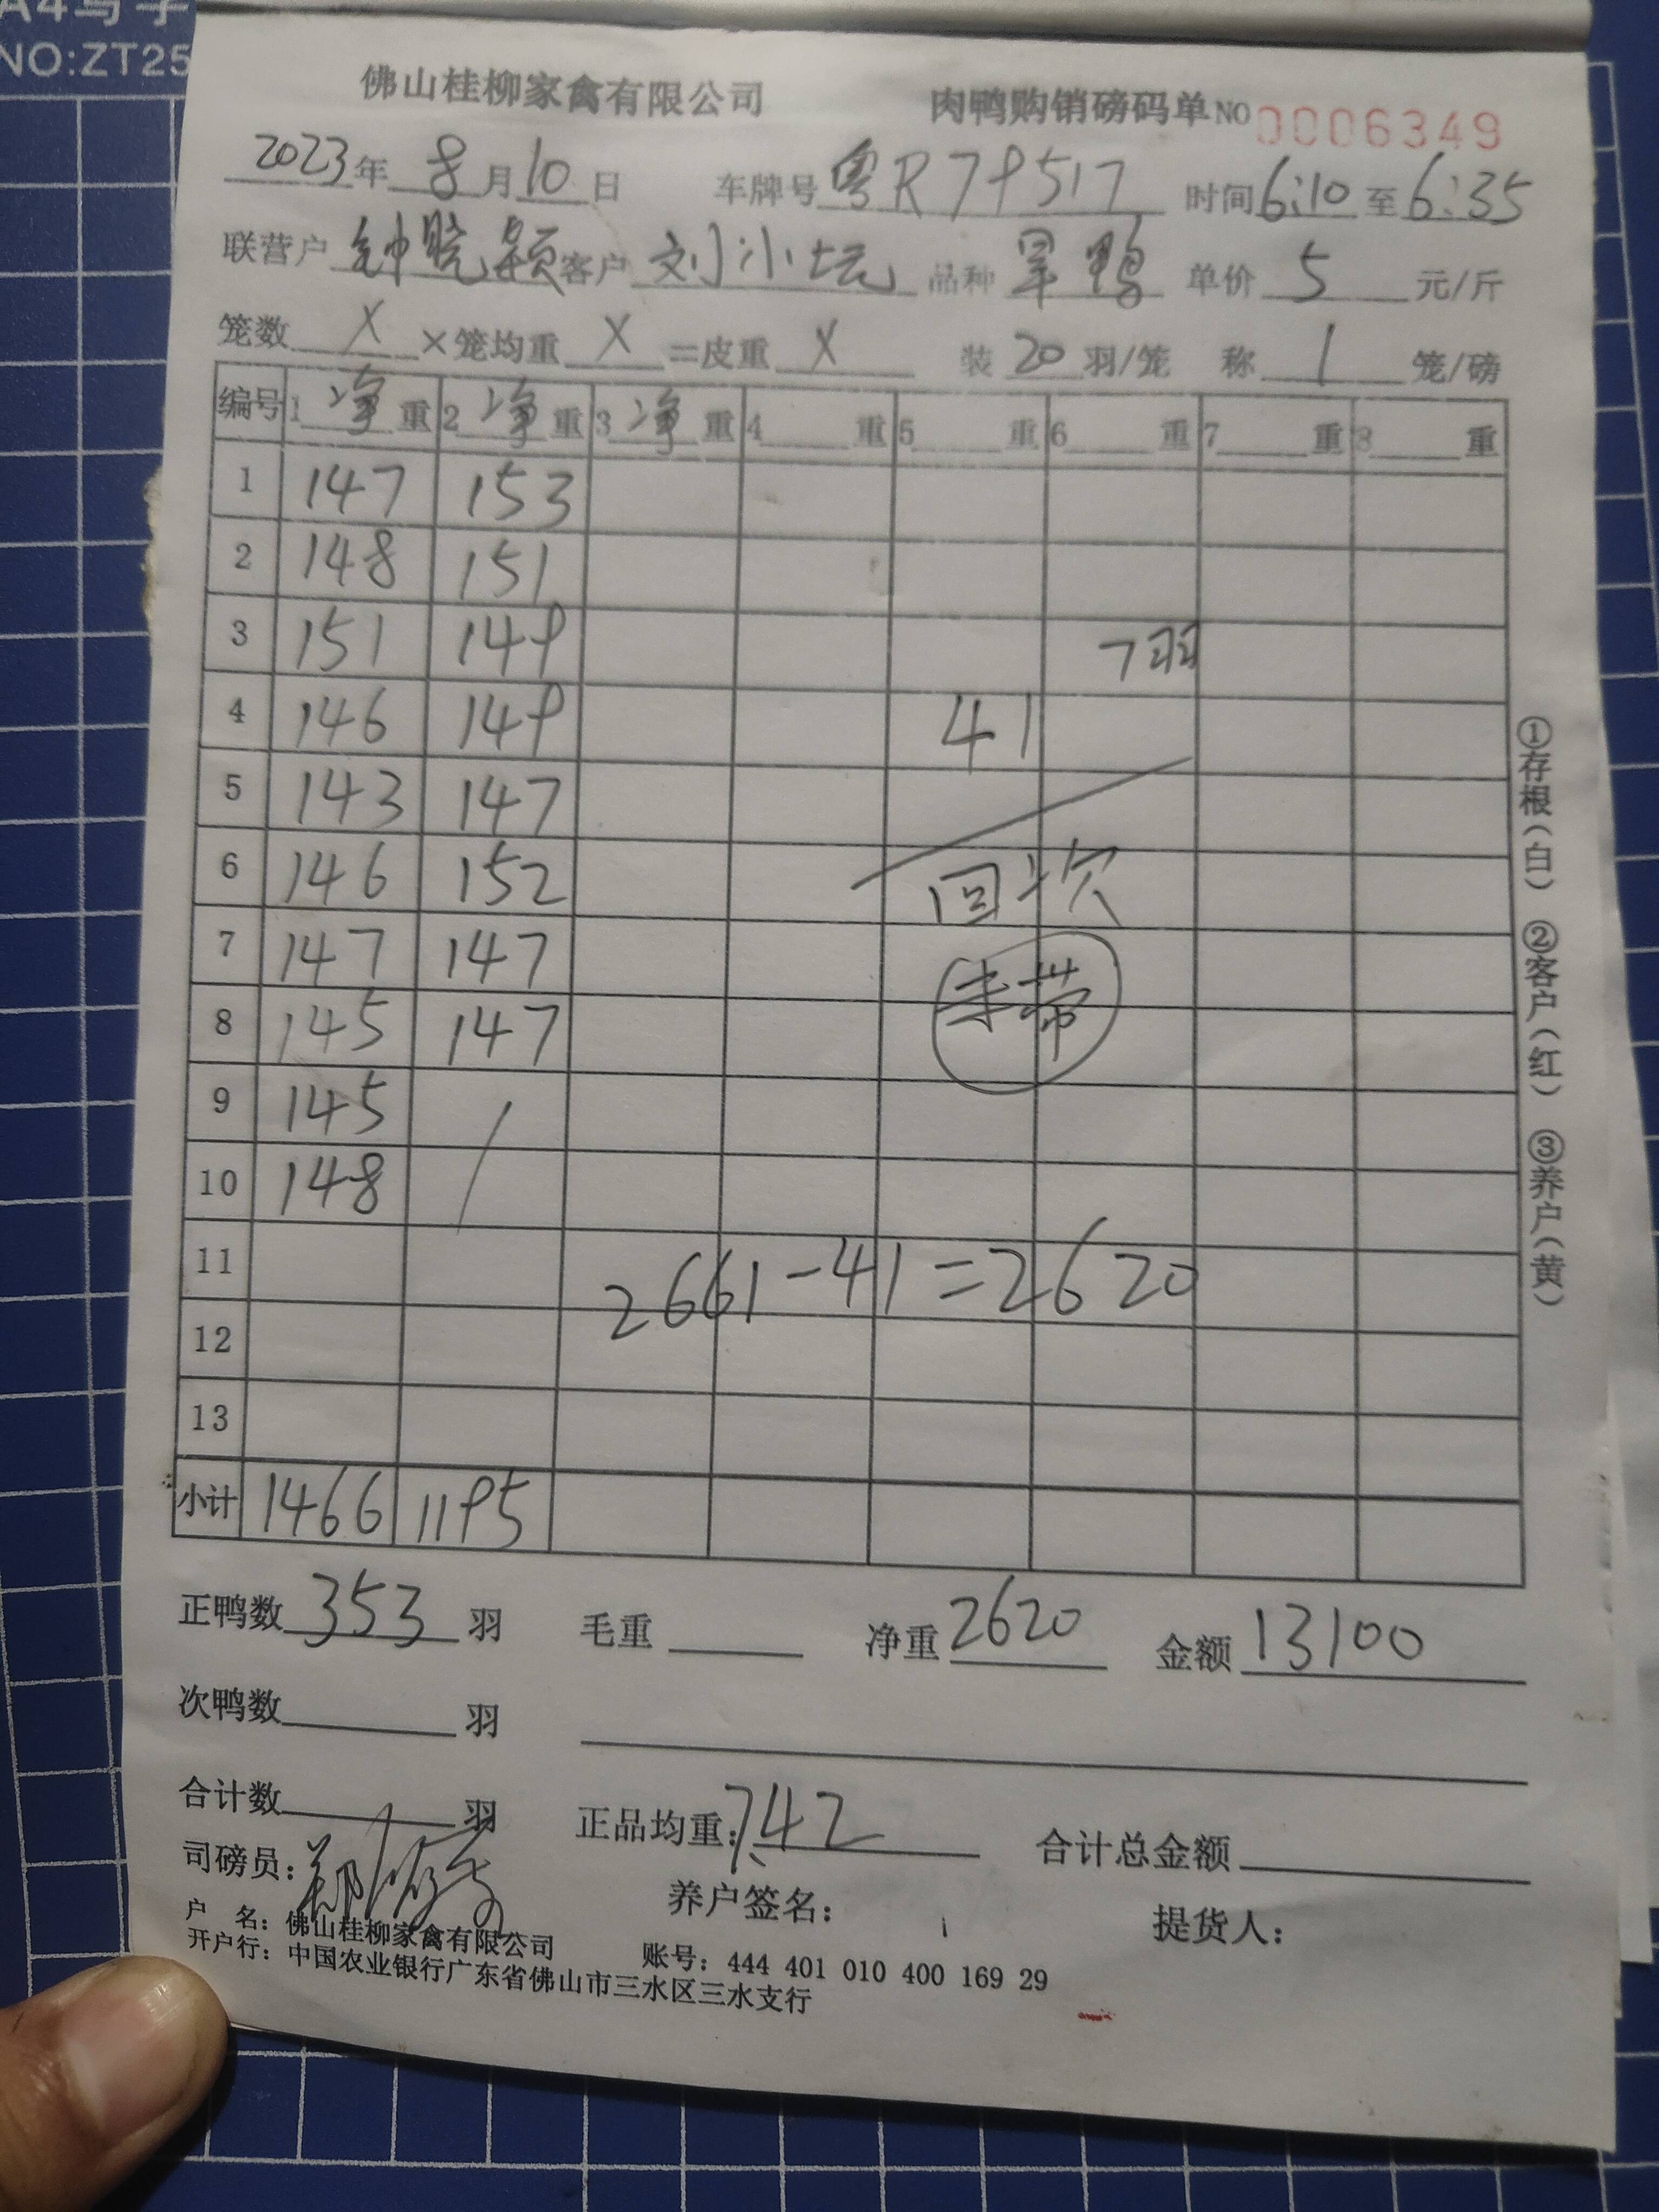 A4写字
NO:ZT25
佛山桂柳家禽有限公司 肉鸭购销磅码单NO 0006349
2023年8月10日 车牌号粤R79517 时间6:10至6:35
联营户钟晓颖客户刘小坛 品种旱鸭 单价5元/斤
笼数X×笼均重X=皮重X 装20羽/笼 称1笼/磅
编号 1净重 2净重 3净重 4重 5重 6重 7重 8重
1 147 153
2 148 151
3 151 149 7羽
4 146 149 41
5 143 147
6 146 152 回次
7 147 147
8 145 147 未带
9 145
10 148
11 2661-41=2620
12
13
小计 1466 1195
①存根(白) ②客户(红) ③养户(黄)
正鸭数353羽 毛重 净重2620 金额13100
次鸭数 羽
合计数 羽 正品均重:7.42 合计总金额
司磅员: 养户签名: 提货人:
户 名:佛山桂柳家禽有限公司 账号:444 401 010 400 169 29
开户行:中国农业银行广东省佛山市三水区三水支行